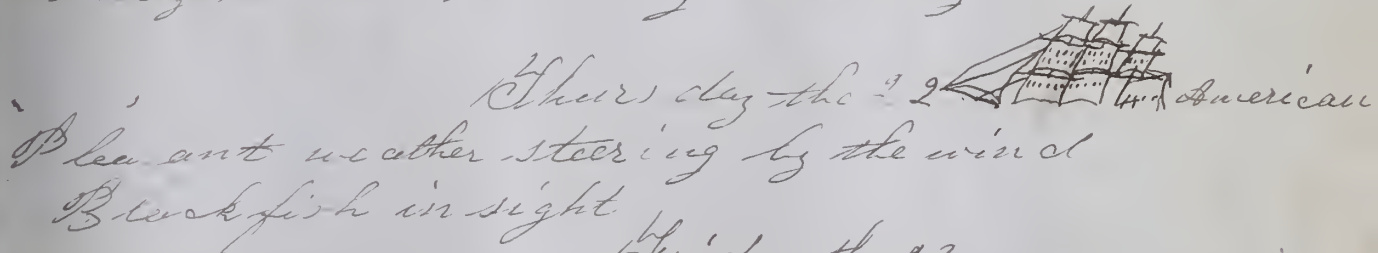 Thursday the 22 American
Pleasant weather steering by the wind
Blackfish in sight